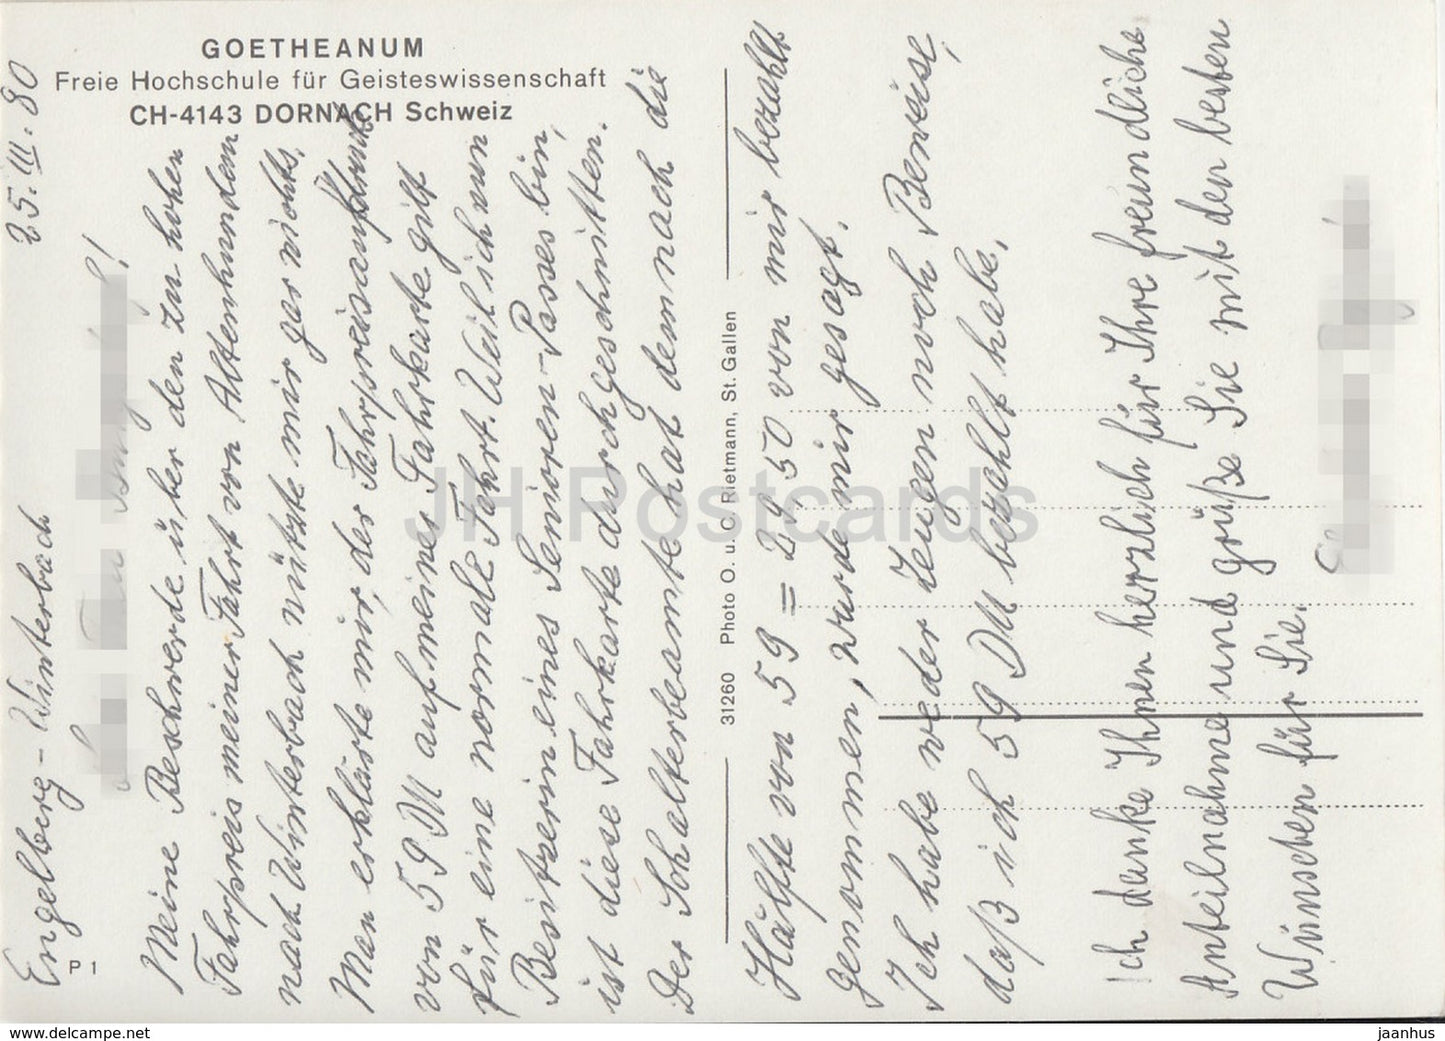 GOETHEANUM
Freie Hochschule für Geisteswissenschaft
CH-4143 DORNACH Schweiz
Engelberg-Winterbach 25. III. 80
Meine Beschwerde über den zu hohen
Fahrpreis meiner Fahrt von Altenhundem
nach Winterbach nützte mir gar nichts.
Man erklärte mir, der Fahrpreisaufdruck
von 59 DM auf meines Fahrkarte gilt
für eine normale Fahrt. Weil ich nun
Besitzerin eines Senioren-Passes bin,
ist diese Fahrkarte durchgeschnitten.
Der Schalterbeamte hat demnach die
P 1
31260 Photo O. u. C. Rietmann, St. Gallen
Hälfte von 59 = 29,50 von mir bezahlt
genommen, wurde mir gesagt.
Ich habe weder Zeugen noch Beweise,
daß ich 59 DM bezahlt habe.
Ich danke Ihnen herzlich für Ihre freundliche
Anteilnahme und grüße Sie mit den besten
Wünschen für Sie.
JH Postcards
www.delcampe.net
jaanhus